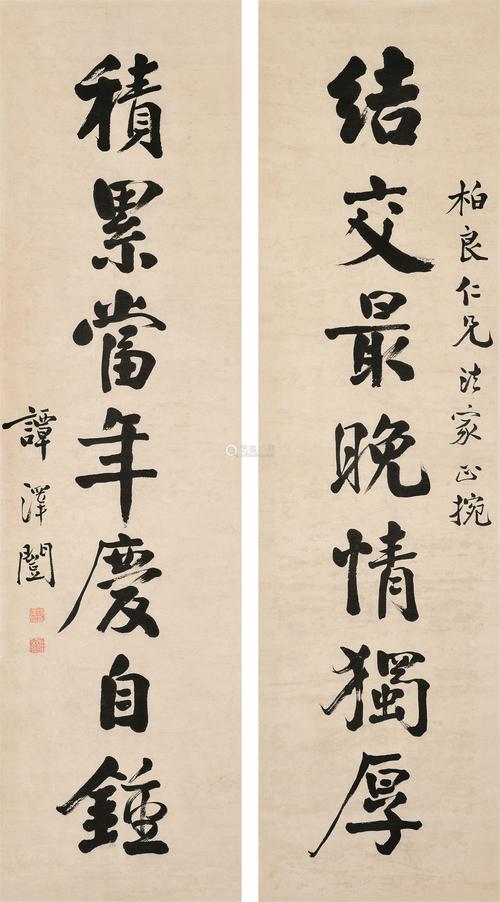 柏良仁兄法家正捥
结交最晚情獨厚
積累當年慶自鍾
譚澤闓